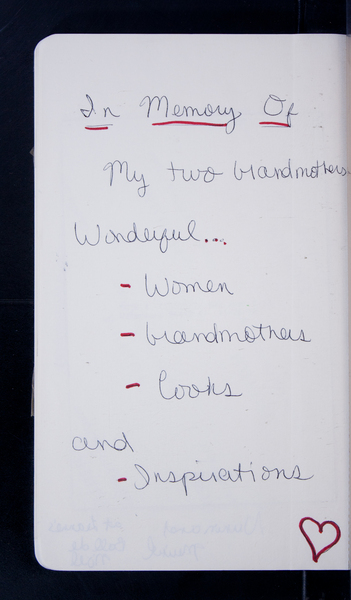 In Memory Of
My two Grandmothers
Wonderful...
- Women
- Grandmothers
- Cooks
and
- Inspirations